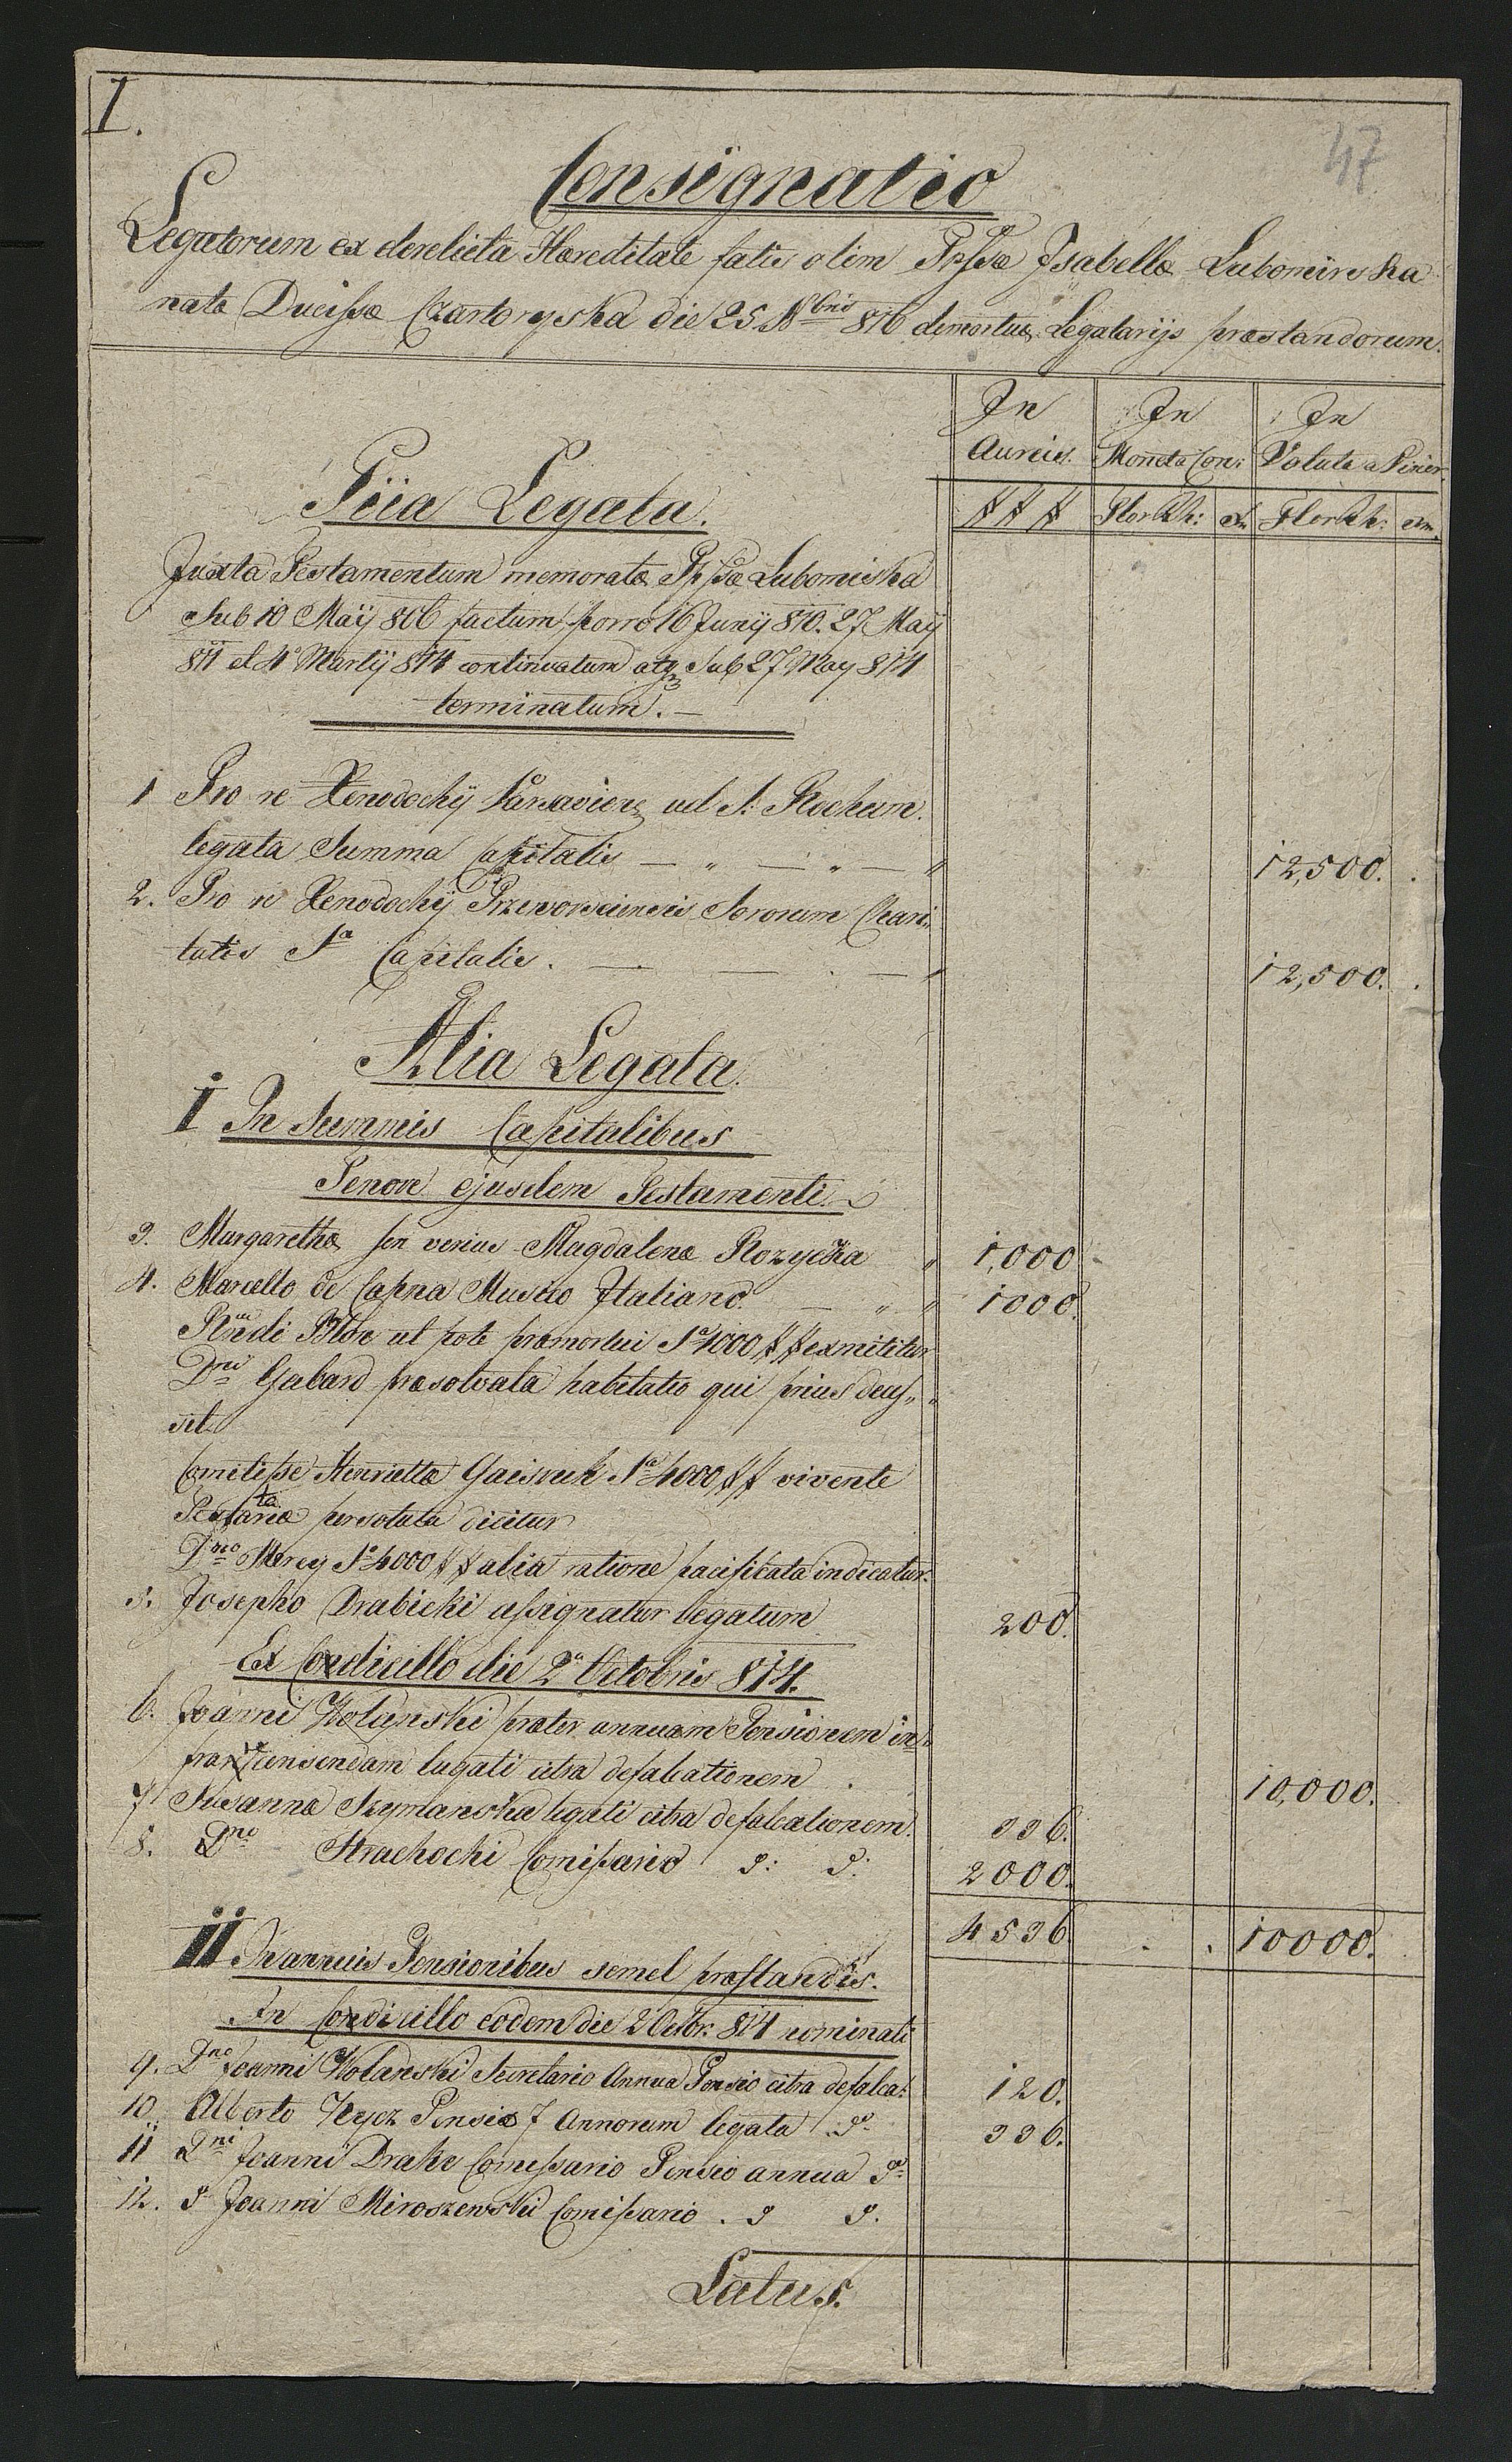 I.
47
Consignatio
Legatorum ex derelicta Hæreditate fatis olim Ppssæ Isabellæ Lubomirska
natæ Ducissæ Czartoryska die 25 Nbris 816 demortuæ Legatarijs præstandorum.
In Aureis. In Moneta Con: In Valuta Vien:
## ## # Flor Rh: Xr. Flor Rh: xr.
Piia Legata.
Juxta Testamentum memoratæ Ppssæ Lubomirska
Sub 10 Maÿ 806 factum, porro 16 Junÿ 810. 27 Maÿ
811 et 4a Martÿ 814 continuatum atq3 Sub 27 May 814
terminatum. —
1 Pro re Xenodochÿ Varsavien. ad S: Rochum.
legata Summa Capitalis — „ — „ — „ 12,500. .
2. Pro re Xenodochÿ Przeworscensis Sororum Chari„
tatis Sa Capitalis. — — . — 12,500. .
Alia Legata.
I In Summis Capitalibus
Tenore ejusdem Testamenti.
3. Margarethæ seu verius Magdalenæ Rozycka „ 1,000
4. Marcello de Capua Musico Italiano. — „ „ 1000.
ut pote præmortui Sa 1000 ## exmititur
Dni Gabard præsolvata habitatio qui prius deces„
sit
Comitissæ Henriettæ Gaisruk Sa 4000 ## vivente
Testatrice persoluta dicitur
Dno Merey Sa 4000 ## alia ratione pacificata indicatur.
5. Josepho Drabicki assignatur legatum 200.
Ex Codicillo die 2a Octobris 814.
6. Joanni Wolanski præter annuam Pensionem in„
fra recensendam lugati citra defalcationem . 10,000.
7 Susanna Szymanska legati citra defalcationem. 336.
8. Dno Strachocki Comissario d: d: 2000.
4536 . . 10000.
II In annuis Pensionibus semel præstandis.
In Codicillo eodem die 2 Octbr: 814 nominati
9. Dno Joanni Wolanski Secretario Annua Pensio citra defalca: 120.
10. Alberto Pensio 7 Annorum legata do 336.
11 Dni Joanni Drake Comissario Pensio annua do
12. d Joanni Miroszewski Comissario . d d.
Latus.